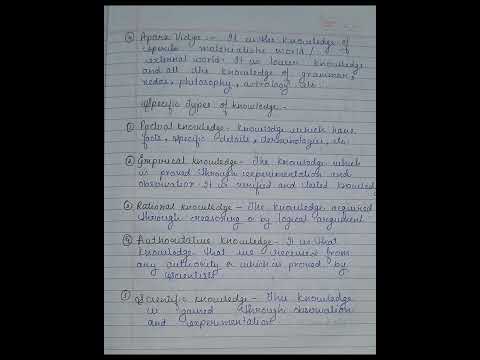 ② Apara Vidya :- It is the knowledge of
materialistic world / of
external world. It is lower knowledge
and all the knowledge of grammar,
vedas, philosophy, astrology etc.
Specific types of knowledge -
① Factual knowledge - Knowledge which have
facts, specific details, terminologies, etc.
② Empirical knowledge - The knowledge which
is proved through experimentation and
observation. It is verified and tested knowledge
③ Rational knowledge - The knowledge acquired
through reasoning or by logical argument
④ Authoritative knowledge - It is that
knowledge that we receive from
any authority or which is proved by
scientists
⑤ Scientific knowledge - This knowledge
is gained through observation
and experimentation